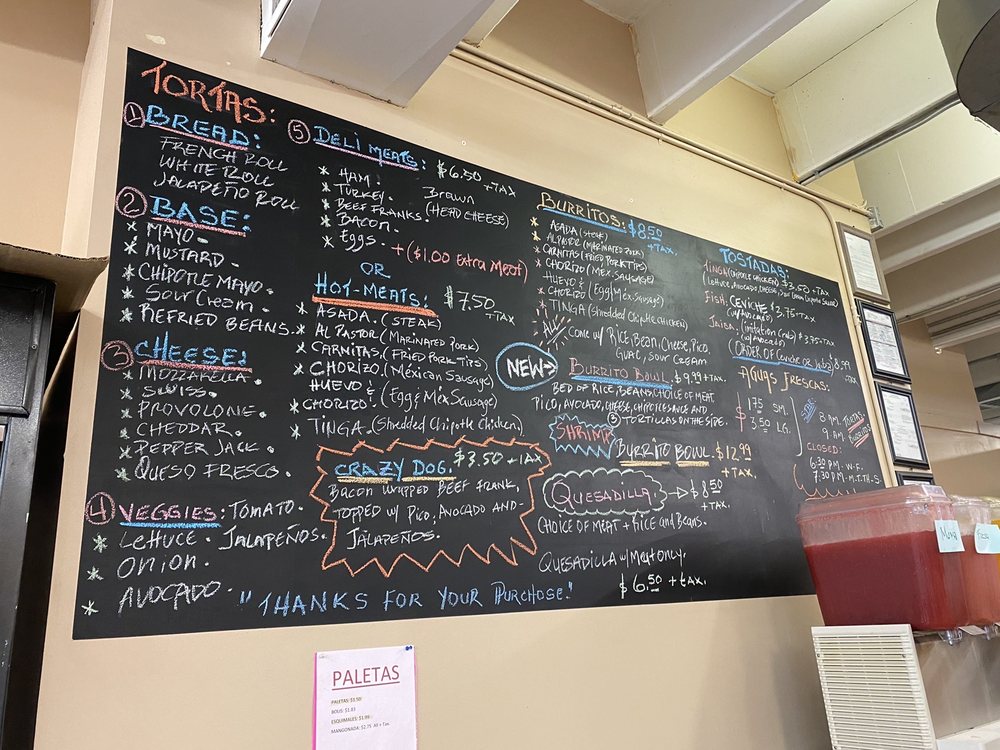 TORTAS:
① BREAD:
FRENCH ROLL
WHITE ROLL
JALAPEÑO ROLL
② BASE:
* MAYO.
* MUSTARD.
* CHIPOTLE MAYO.
* Sour Cream.
* REFRIED BEANS.
③ CHEESE:
* MOZZARELLA
* SWISS.
* PROVOLONE.
* CHEDDAR.
* PEPPER JACK.
* QUESO FRESCO.
④ VEGGIES: TOMATO.
* LETTUCE. JALAPEÑOS.
* ONION.
* AVOCADO.
⑤ DELI MEATS: $6.50 +TAX
* HAM.
* TURKEY. Brown
* BEEF FRANKS. (HEAD CHEESE)
* BACON.
* Eggs. +($1.00 Extra Meat)
OR
HOT-MEATS: $7.50 +TAX
* ASADA. (STEAK)
* AL PASTOR (MARINATED PORK)
* CARNITAS. (FRIED PORK TIPS)
* CHORIZO. (Mexican Sausage)
HUEVO &
* CHORIZO. (Egg & Mex Sausage)
* TINGA. (Shredded Chipotle Chicken)
CRAZY DOG. $3.50 +TAX
BACON WRAPPED BEEF FRANK,
TOPPED W/ PICO, AVOCADO AND
JALAPEÑOS.
"THANKS FOR YOUR PURCHASE."
BURRITOS. $8.50 +TAX.
* ASADA (STEAK)
* AL PASTOR (MARINATED PORK)
* CARNITAS (FRIED PORK TIPS)
* CHORIZO (MEX. SAUSAGE)
HUEVO &
* CHORIZO (Egg/Mex Sausage)
* TINGA (Shredded Chipotle CHICKEN)
ALL COME W/ RICE, BEAN, CHEESE, PICO
GUAC, SOUR CREAM
NEW→ BURRITO BOWL $9.99 +TAX.
BED OF RICE, BEANS, CHOICE OF MEAT
PICO, AVOCADO, CHEESE, CHIPOTLE SAUCE AND
③ TORTILLAS ON THE SIDE.
SHRIMP BURRITO BOWL. $12.99 +TAX
QUESADILLA → $8.50 +TAX.
CHOICE OF MEAT + RICE AND BEANS.
QUESADILLA W/ Meat only.
$6.50 + tax.
TOSTADAS:
TINGA (CHIPOTLE CHICKEN) $3.50 +TAX
(LETTUCE, AVOCADO, CHEESE, Sour Cream
FISH. CEVICHE $3.75 +TAX
(W/ AVOCADO)
JAIBA. (imitation Crab) $3.75 +TAX
(W/ AVOCADO)
(ORDER OF Ceviche OR Jaiba) 8.99 +TAX
AGUAS FRESCAS.
$ 1.75 SM.
$ 3.50 LG.
TORTAS
BURRITOS
CLOSED:
6:30 PM - W.F.
7:30 PM - M.T.TH.S
PALETAS
PALETAS: $3.50
BOLIS: $1.83
ESQUIMALES:
MANGONADA: $2.75 All + Tax